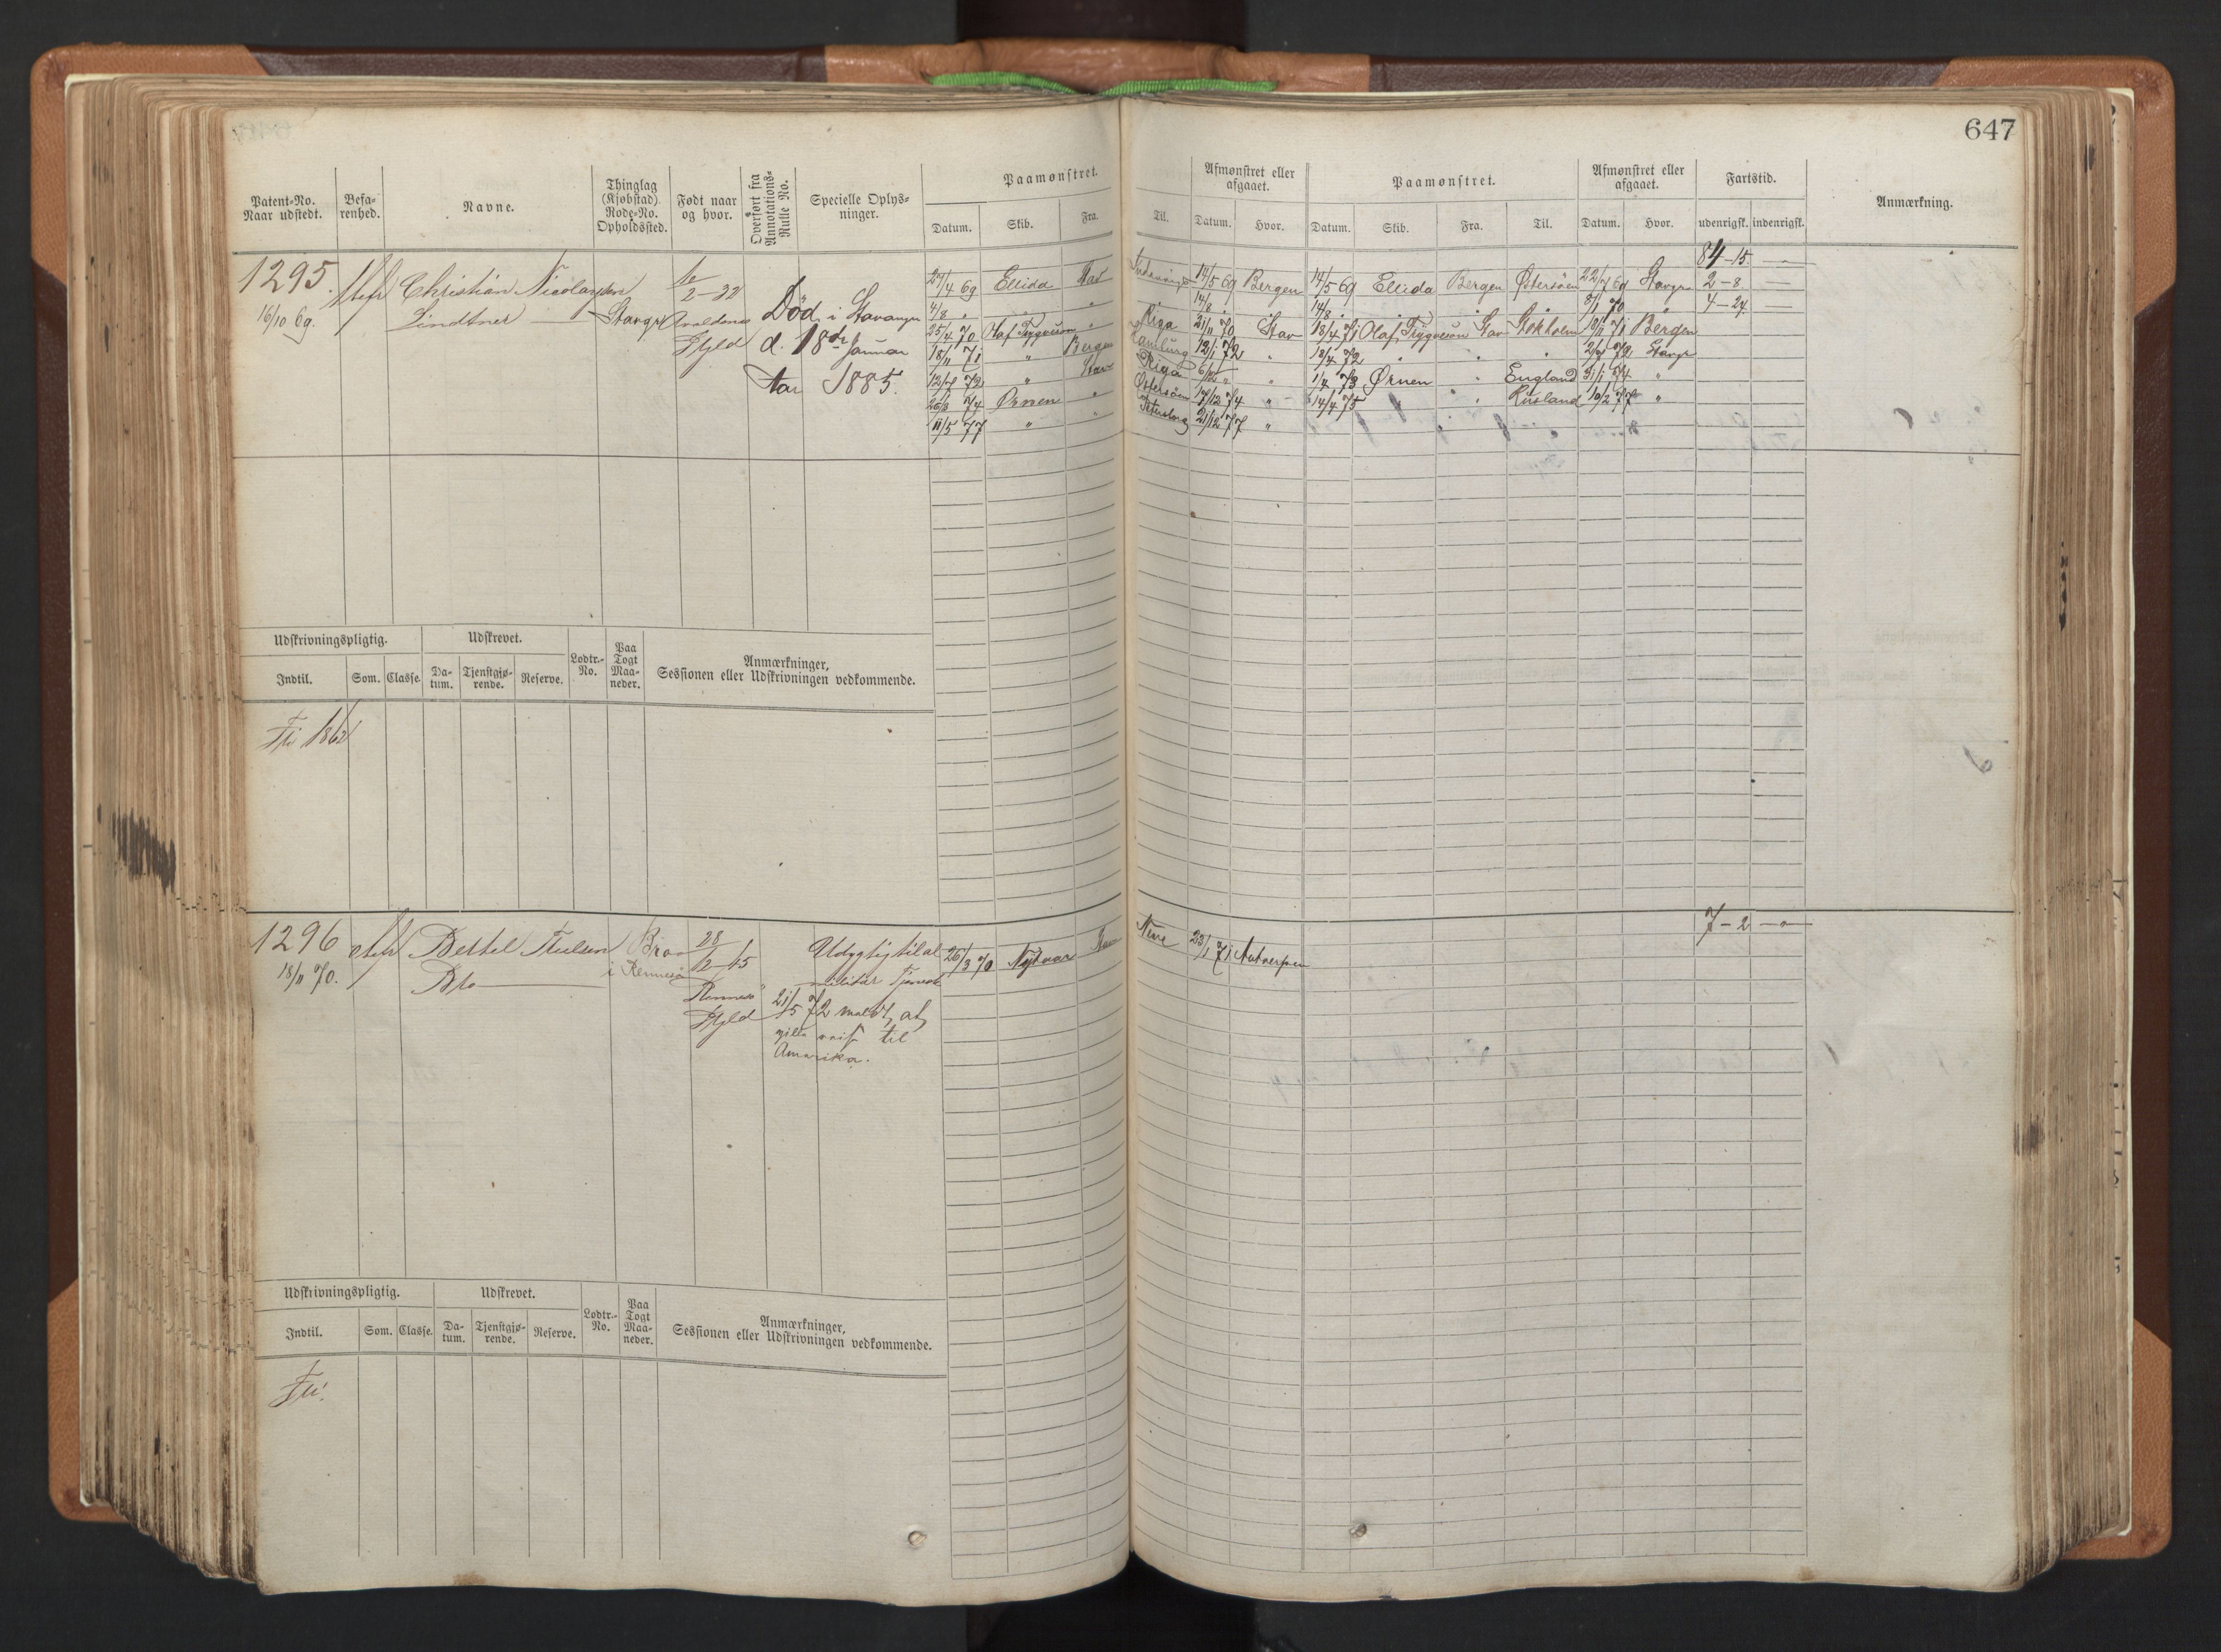 647
Patent-No. Naar udstedt.
Befa-renhed.
Navne.
Thinglag (Kjøbstad). Rode-No. Opholdssted.
Født naar og hvor.
Overført fra Annotations-Rulle No.
Specielle Oplys-ninger.
Paamønstret.
Datum. Skib. Fra. Til.
Afmønstret eller afgaaet.
Datum. Hvor.
Paamønstret.
Datum. Skib. Fra. Til.
Afmønstret eller afgaaet.
Datum. Hvor.
Fartstid.
udenrigsk. indenrigsk.
Anmærkning.
84-15 —
1295.
16/10 69.
Christian Nicolaysen
Lindtner
Stavgr
2-32
Avaldsnes
Gjld
Død i Stavanger
d. 18de Januar
1885.
27/4 69 Ellida Stav 14/5 69 Bergen 14/5 69 Ellida Bergen Østersöen 22/7 69 Stavgr 2-8 —
4/8 " " " 14/8 " 14/8 " " " 8/1 70 " 4-24 —
25/4 70 Olaf Trygveson " Riga 21/11 70 Stav 18/4 71 Olaf Trygveson Stav Stokholm 18/11 71 Bergen
18/11 71 " Bergen Hamburg 12/1 72 " 18/4 72 " " " 72 Stavgr
72 " Stav Riga " " 1/4 73 Ørnen " England 31/1 74 "
26/8 74 Ørnen " Østersöen 14/12 74 " 14/4 75 " " Rusland 10/2 77 "
11/5 77 " " Petersborg 21/12 77 "
Udskrivningspligtig.
Indtil. Som. Classe.
Udskrevet.
Da-tum. Tjenstgjø-rende. Reserve.
Lodtr.-No.
Paa Togt Maa-neder.
Anmærkninger,
Sessionen eller Udskrivningen vedkommende.
Fri 1862
1296
18/11 70.
Bertel
Bro
Bro
i Rennesö
28/2-45
Rennesö
Gjld
Udygtig til al
militär Tjeneste
21/5 72 meldt, at
ville reise til
Amerika.
26/3 70 23/1 71 Antverpen
7-2 —
Udskrivningspligtig.
Indtil. Som. Classe.
Udskrevet.
Da-tum. Tjenstgjø-rende. Reserve.
Lodtr.-No.
Paa Togt Maa-neder.
Anmærkninger,
Sessionen eller Udskrivningen vedkommende.
Fri.